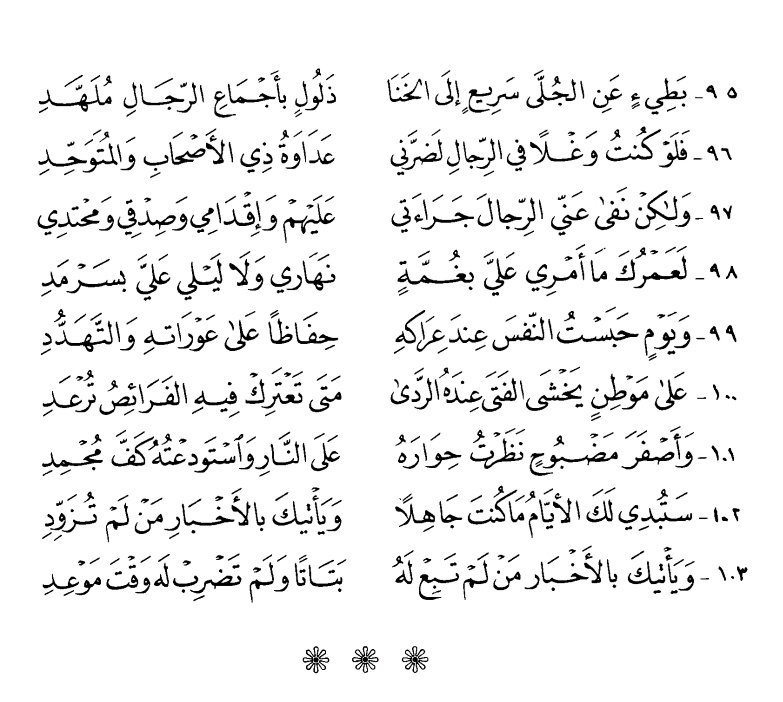 ٩٥- بَطِيءٍ عَنِ الجُلَّى سَرِيعٍ إلَى الخَنَا ذَلُولٍ بأَجْمَاعِ الرّجَالِ مُلَهَّدِ
٩٦- فَلَوْ كُنتُ وَغْلًا في الرّجالِ لَضَرَّني عَدَاوَةُ ذِي الأَصْحَابِ وَالمُتَوَحِّدِ
٩٧- وَلكِنْ نَفَى عَنّي الرِّجالَ جَرَاءَتي عَلَيْهِمْ وَإِقْدَامِي وَصِدْقِي وَمَحْتِدِي
٩٨- لَعَمْرُكَ مَا أَمْرِي عَلَيَّ بغُمَّةٍ نَهَارِي وَلَا لَيْلِي عَلَيَّ بسَرْمَدِ
٩٩- وَيَوْمٍ حَبَسْتُ النّفسَ عِندَ عِرَاكِهِ حِفَاظاً عَلى عَوْرَاتهِ وَالتَّهَدُّدِ
١٠٠- عَلى مَوْطِنٍ يَخْشَى الفَتَى عِندَهُ الرَّدَى مَتَى تَعْتَرِكْ فِيهِ الفَرَائِصُ تُرْعَدِ
١٠١- وَأَصْفَرَ مَضْبُوحٍ نَظَرْتُ حِوَارَهُ عَلَى النَّارِ وَاسْتَودَعْتُهُ كَفَّ مُجْمِدِ
١٠٢- سَتُبْدِي لَكَ الأيَّامُ مَا كُنتَ جَاهِلًا وَيَأْتيكَ بالأَخْبَارِ مَنْ لَمْ تُزَوِّدِ
١٠٣- وَيَأْتيكَ بالأَخْبَارِ مَنْ لَمْ تَبِعْ لَهُ بَتَاتًا وَلَمْ تَضْرِبْ لَه وَقْتَ مَوْعِدِ